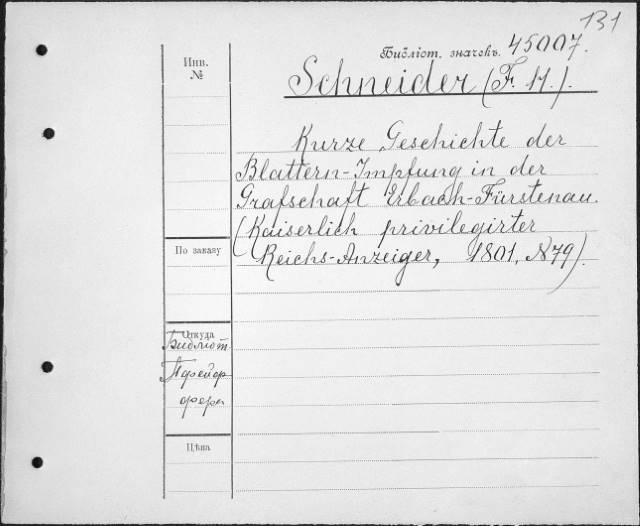 131
Библіот. значекъ. 45007.
Инв.
№
Schneider (F. H.).
Kurze Geschichte der
Blattern-Impfung in der
Grafschaft Erbach-Fürstenau.
(Kaiserlich privilegirter
Reichs-Anzeiger, 1801, №79).
По заказу
Откуда
Библіот.
Цѣна